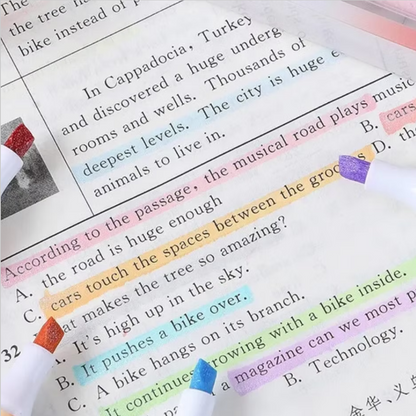 The
the tree
bike instead of
In Cappadocia, Turkey
and discovered a huge underg
rooms and wells. Thousands of
deepest levels. The city is huge e
animals to live in.
According to the passage, the musical road plays music
A. the road is huge enough
B. cars
C. cars touch the spaces between the groo s
D. th
at makes the tree so amazing?
32
A. It's high up in the sky.
B. It pushes a bike over.
C. A bike hangs on its branch.
It continues rowing with a bike inside.
a magazine can we most p
B. Technology.
金华、义